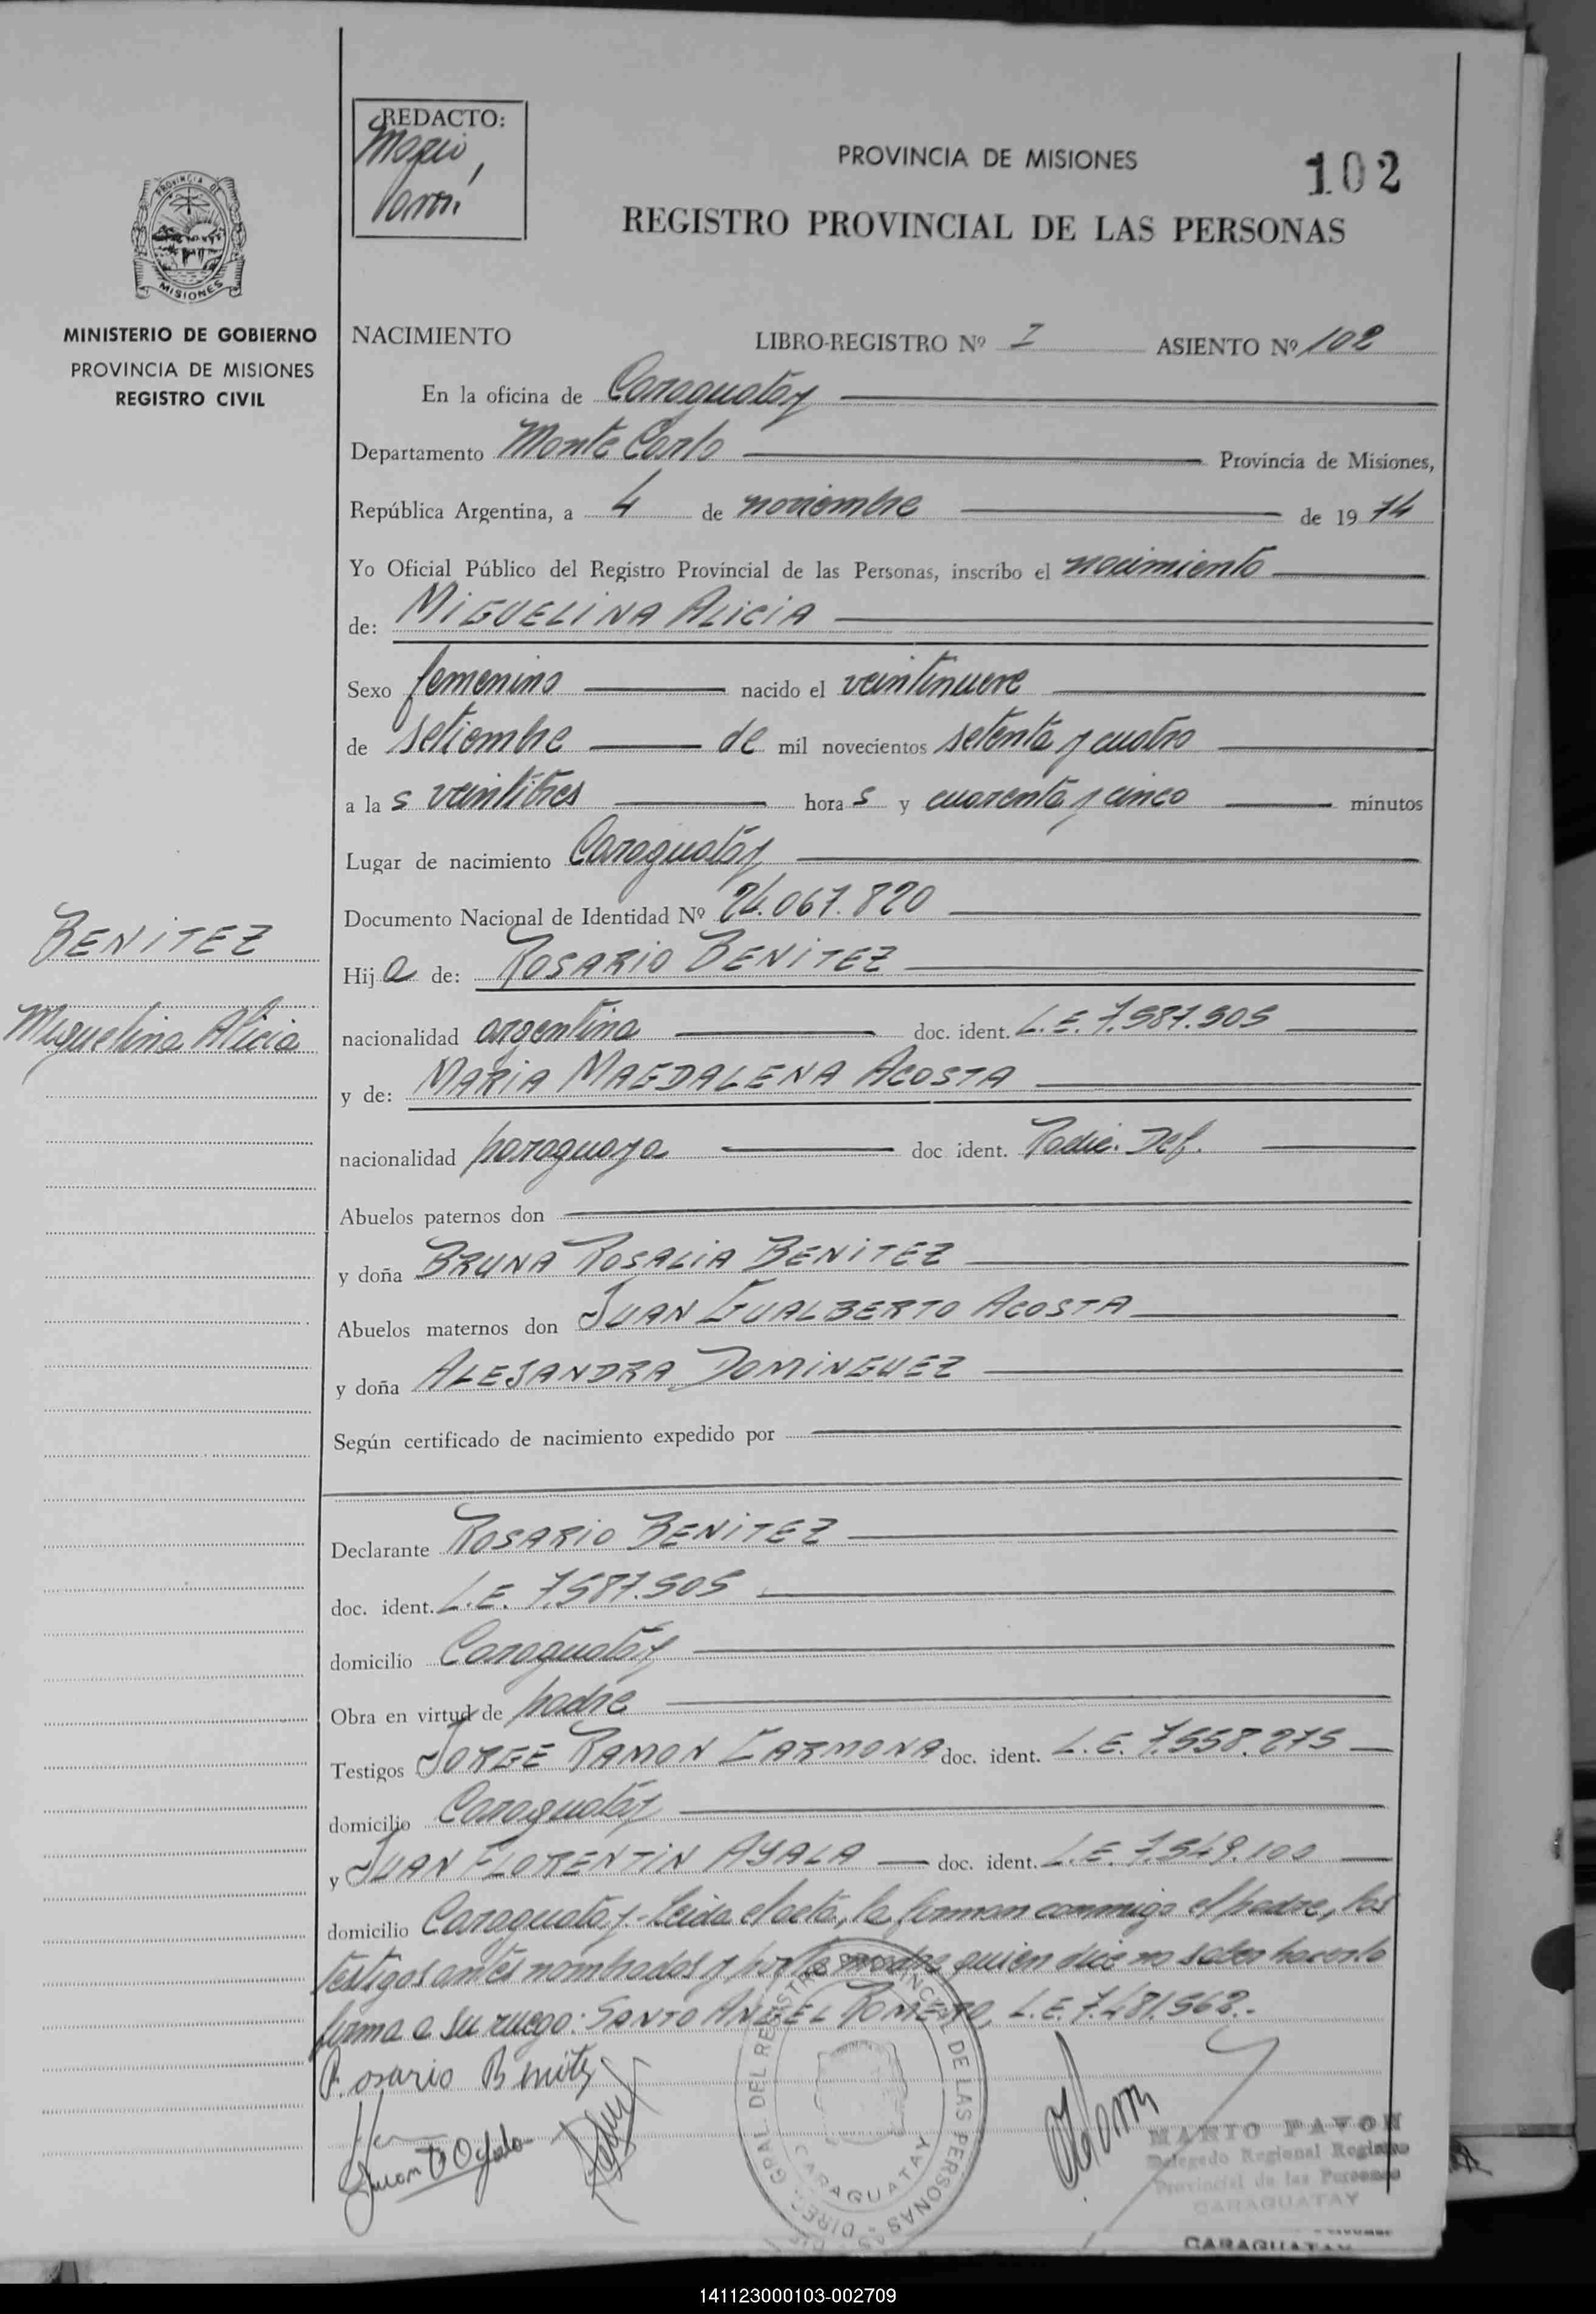 REDACTO:
Mario
PROVINCIA DE MISIONES
102
REGISTRO PROVINCIAL DE LAS PERSONAS
PROVINCIA DE
MISIONES
MINISTERIO DE GOBIERNO
PROVINCIA DE MISIONES
REGISTRO CIVIL
NACIMIENTO LIBRO-REGISTRO Nº I ASIENTO Nº 102
En la oficina de Caraguatay
Departamento Monte Carlo Provincia de Misiones,
República Argentina, a 4 de noviembre de 19 74
Yo Oficial Público del Registro Provincial de las Personas, inscribo el nacimiento
de: MIGUELINA ALICIA
Sexo femenino nacido el veintinueve
de setiembre de mil novecientos setenta y cuatro
a la s veintitres hora s y cuarenta y cinco minutos
Lugar de nacimiento Caraguatay
Documento Nacional de Identidad Nº 24.067.820
BENITEZ
Miguelina Alicia
Hij a de: ROSARIO BENITEZ
nacionalidad argentina doc. ident. L.E. 7.587.505
y de: MARIA MAGDALENA ACOSTA
nacionalidad paraguaya doc ident. Radic. Def.
Abuelos paternos don
y doña BRUNA ROSALIA BENITEZ
Abuelos maternos don JUAN GUALBERTO ACOSTA
y doña ALEJANDRA DOMINGUEZ
Según certificado de nacimiento expedido por
Declarante ROSARIO BENITEZ
doc. ident. L.E. 7.587.505
domicilio Caraguatay
Obra en virtud de padre
Testigos JORGE RAMON CARMONA doc. ident. L.E. 7.558.275
domicilio Caraguatay
y JUAN FLORENTIN AYALA doc. ident. L.E. 7.549.100
domicilio Caraguatay - Leida el acta, la firman conmigo el padre, los
testigos antes nombrados y por la madre quien dice no saber hacerlo
firma a su ruego: SANTO ANGEL ROMERO, L.E. 7.481.568.-
Rosario Benitez
DIREC. GRAL. DEL REGISTRO PROVINCIAL DE LAS PERSONAS
CARAGUATAY
MARIO PAVON
Delegado Regional Registro
Provincial de las Personas
CARAGUATAY
CARAGUATAY
141123000103-002709